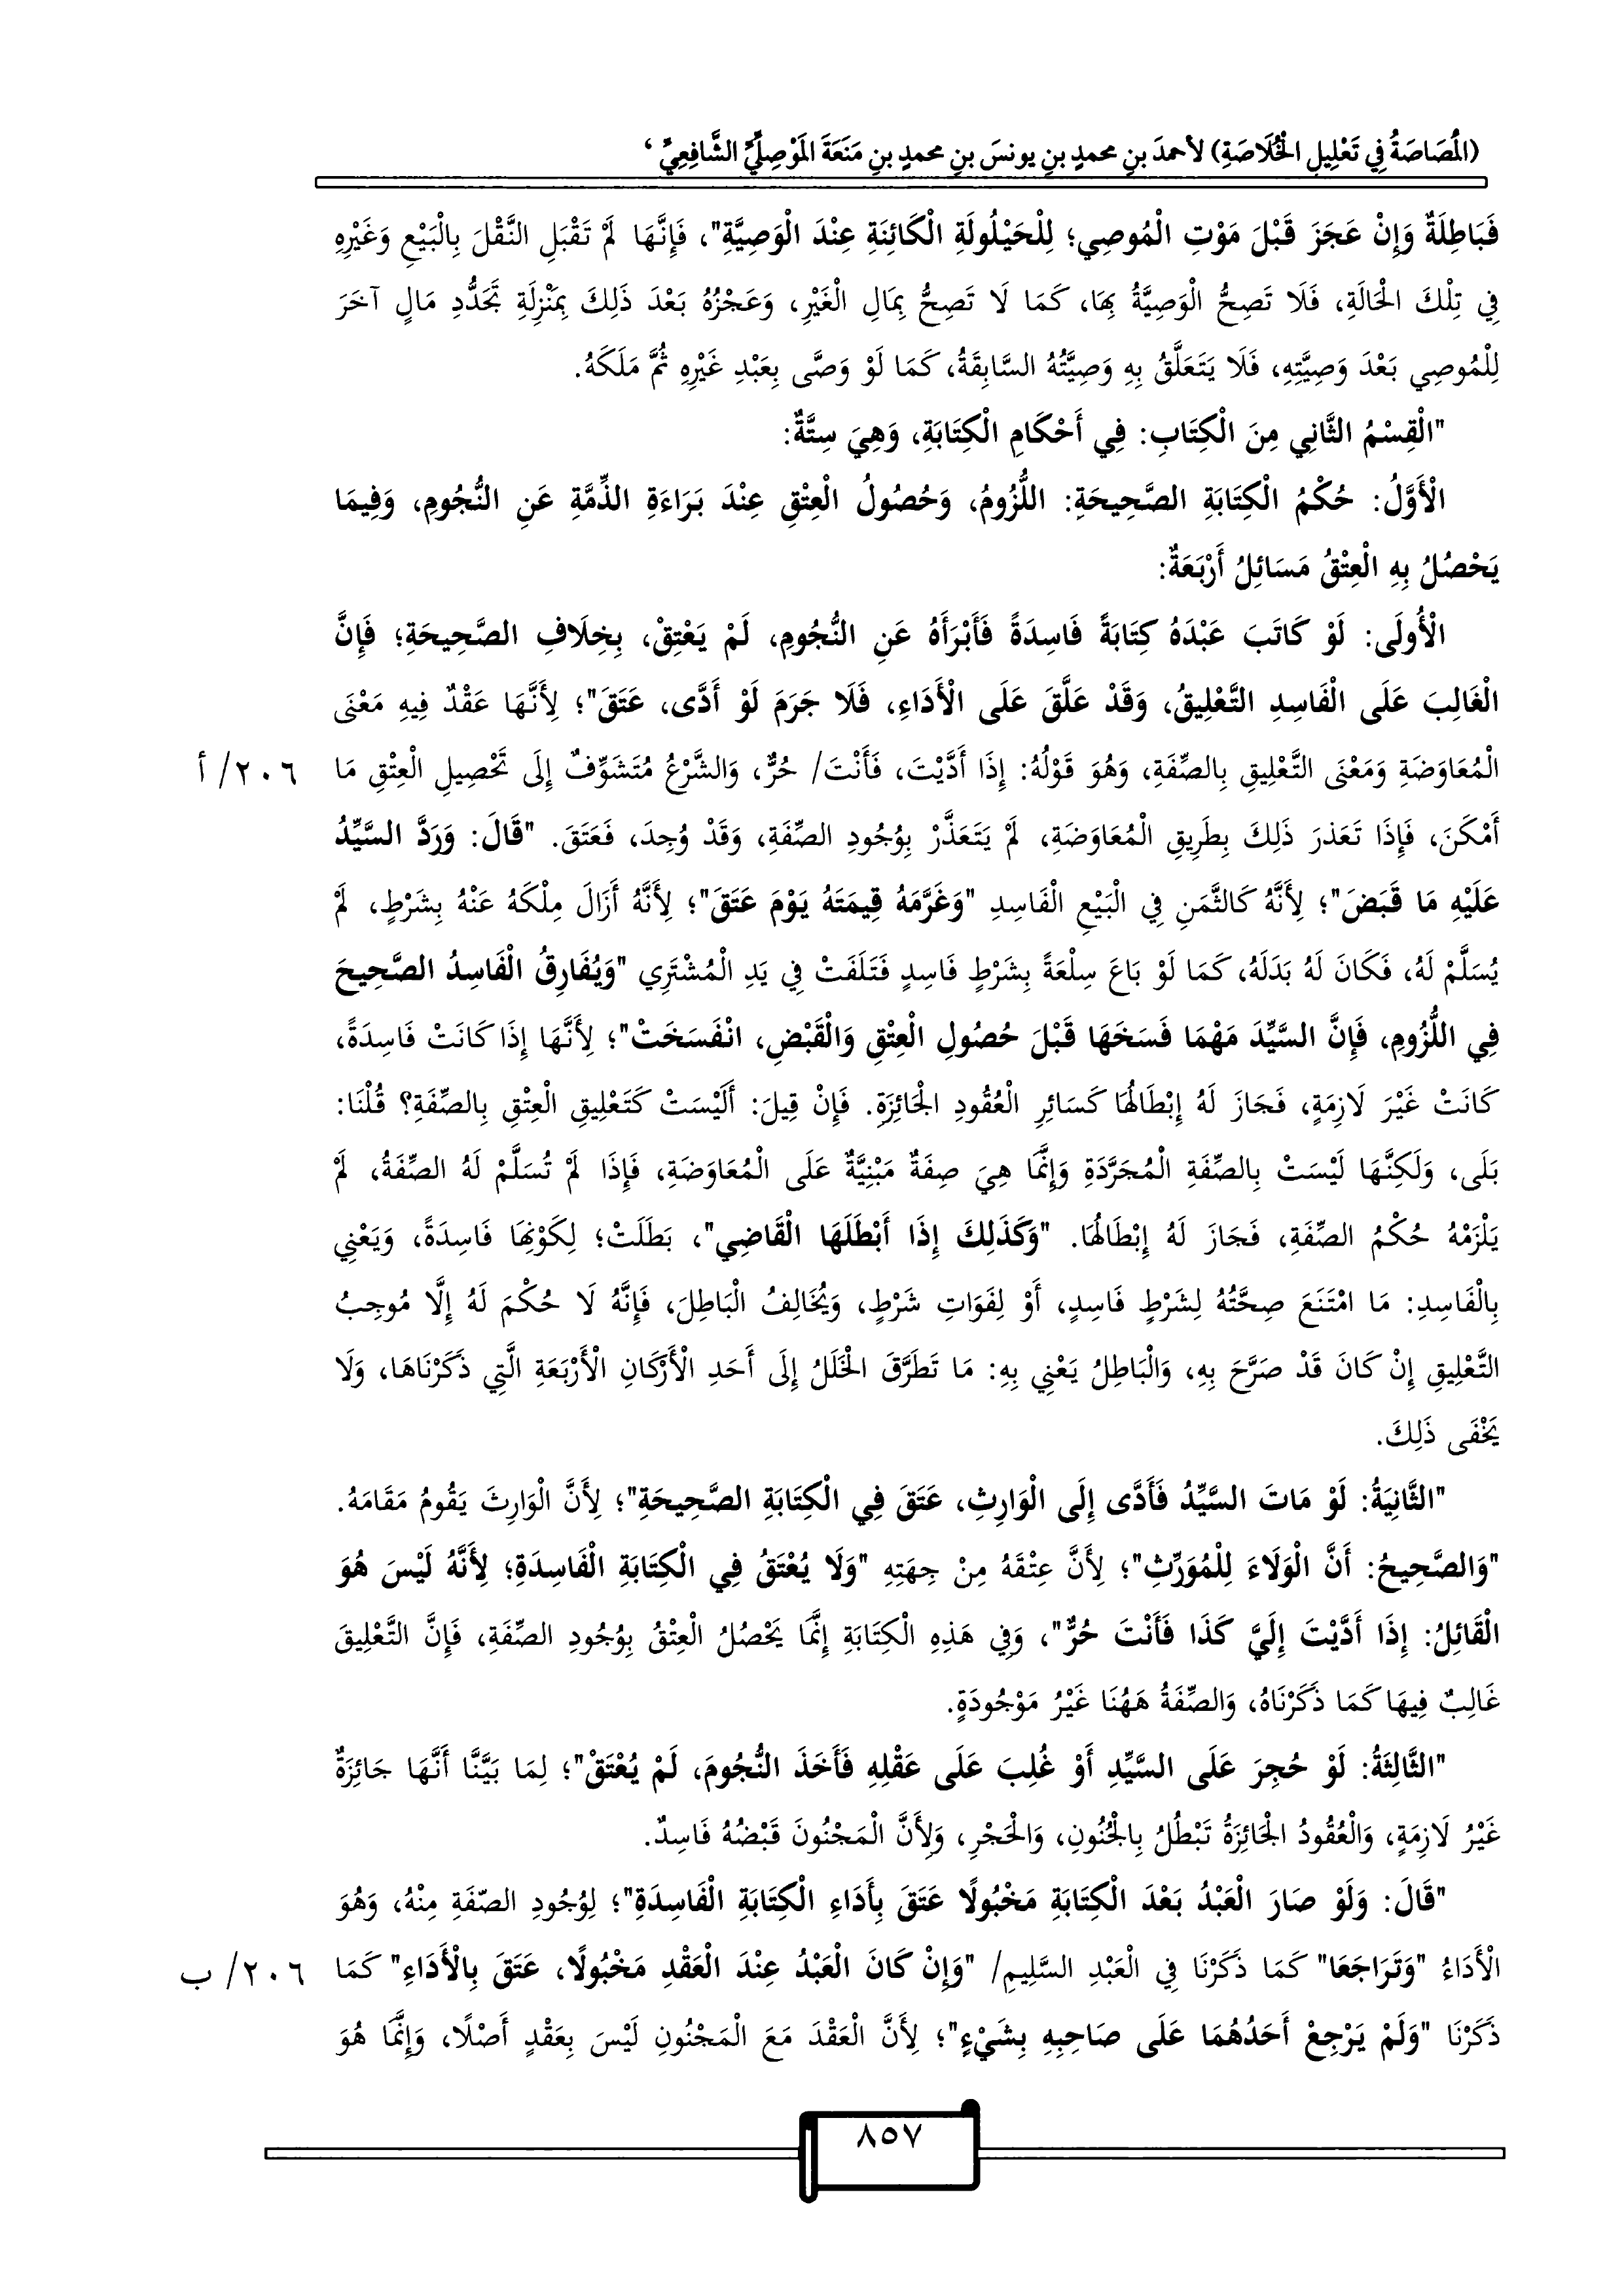 (الْمُصَاصَةُ فِي تَعْلِيلِ الْخُلَاصَةِ) لأحمدَ بنِ محمدِ بنِ يونسَ بنِ محمدِ بنِ مَنَعَةَ المَوْصِلِيِّ الشَّافِعِيِّ ‘
فَبَاطِلَةٌ وَإِنْ عَجَزَ قَبْلَ مَوْتِ الْمُوصِي؛ لِلْحَيْلُولَةِ الْكَائِنَةِ عِنْدَ الْوَصِيَّةِ"، فَإِنَّهَا لَمْ تَقْبَلِ النَّقْلَ بِالْبَيْعِ وَغَيْرِهِ
فِي تِلْكَ الْحَالَةِ، فَلَا تَصِحُّ الْوَصِيَّةُ بِهَا، كَمَا لَا تَصِحُّ بِمَالِ الْغَيْرِ، وَعَجْزُهُ بَعْدَ ذَلِكَ بِمَنْزِلَةِ تَجَدُّدِ مَالٍ آخَرَ
لِلْمُوصِي بَعْدَ وَصِيَّتِهِ، فَلَا يَتَعَلَّقُ بِهِ وَصِيَّتُهُ السَّابِقَةُ، كَمَا لَوْ وَصَّى بِعَبْدِ غَيْرِهِ ثُمَّ مَلَكَهُ.
"الْقِسْمُ الثَّانِي مِنَ الْكِتَابِ: فِي أَحْكَامِ الْكِتَابَةِ، وَهِيَ سِتَّةٌ:
الْأَوَّلُ: حُكْمُ الْكِتَابَةِ الصَّحِيحَةِ: اللُّزُومُ، وَحُصُولُ الْعِتْقِ عِنْدَ بَرَاءَةِ الذِّمَّةِ عَنِ النُّجُومِ، وَفِيمَا
يَحْصُلُ بِهِ الْعِتْقُ مَسَائِلُ أَرْبَعَةٌ:
الْأُولَى: لَوْ كَاتَبَ عَبْدَهُ كِتَابَةً فَاسِدَةً فَأَبْرَأَهُ عَنِ النُّجُومِ، لَمْ يَعْتِقْ، بِخِلَافِ الصَّحِيحَةِ؛ فَإِنَّ
الْغَالِبَ عَلَى الْفَاسِدِ التَّعْلِيقُ، وَقَدْ عَلَّقَ عَلَى الْأَدَاءِ، فَلَا جَرَمَ لَوْ أَدَّى، عَتَقَ"؛ لِأَنَّهَا عَقْدٌ فِيهِ مَعْنَى
الْمُعَاوَضَةِ وَمَعْنَى التَّعْلِيقِ بِالصِّفَةِ، وَهُوَ قَوْلُهُ: إِذَا أَدَّيْتَ، فَأَنْتَ/ حُرٌّ، وَالشَّرْعُ مُتَشَوِّفٌ إِلَى تَحْصِيلِ الْعِتْقِ مَا ٢٠٦/ أ
أَمْكَنَ، فَإِذَا تَعَذرَ ذَلِكَ بِطَرِيقِ الْمُعَاوَضَةِ، لَمْ يَتَعَذَّرْ بِوُجُودِ الصِّفَةِ، وَقَدْ وُجِدَ، فَعَتَقَ. "قَالَ: وَرَدَّ السَّيِّدُ
عَلَيْهِ مَا قَبَضَ"؛ لِأَنَّهُ كَالثَّمَنِ فِي الْبَيْعِ الْفَاسِدِ "وَغَرَّمَهُ قِيمَتَهُ يَوْمَ عَتَقَ"؛ لِأَنَّهُ أَزَالَ مِلْكَهُ عَنْهُ بِشَرْطٍ، لَمْ
يُسَلَّمْ لَهُ، فَكَانَ لَهُ بَدَلَهُ، كَمَا لَوْ بَاعَ سِلْعَةً بِشَرْطٍ فَاسِدٍ فَتَلَفَتْ فِي يَدِ الْمُشْتَرِي "وَيُفَارِقُ الْفَاسِدُ الصَّحِيحَ
فِي اللُّزُومِ، فَإِنَّ السَّيِّدَ مَهْمَا فَسَخَهَا قَبْلَ حُصُولِ الْعِتْقِ وَالْقَبْضِ، انْفَسَخَتْ"؛ لِأَنَّهَا إِذَا كَانَتْ فَاسِدَةً،
كَانَتْ غَيْرَ لَازِمَةٍ، فَجَازَ لَهُ إِبْطَالُهَا كَسَائِرِ الْعُقُودِ الْجَائِزَةِ. فَإِنْ قِيلَ: أَلَيْسَتْ كَتَعْلِيقِ الْعِتْقِ بِالصِّفَةِ؟ قُلْنَا:
بَلَى، وَلَكِنَّهَا لَيْسَتْ بِالصِّفَةِ الْمُجَرَّدَةِ وَإِنَّمَا هِيَ صِفَةٌ مَبْنِيَّةٌ عَلَى الْمُعَاوَضَةِ، فَإِذَا لَمْ تُسَلَّمْ لَهُ الصِّفَةُ، لَمْ
يَلْزَمْهُ حُكْمُ الصِّفَةِ، فَجَازَ لَهُ إِبْطَالُهَا. "وَكَذَلِكَ إِذَا أَبْطَلَهَا الْقَاضِي"، بَطَلَتْ؛ لِكَوْنِهَا فَاسِدَةً، وَيَعْنِي
بِالْفَاسِدِ: مَا امْتَنَعَ صِحَّتُهُ لِشَرْطٍ فَاسِدٍ، أَوْ لِفَوَاتِ شَرْطٍ، وَيُخَالِفُ الْبَاطِلَ، فَإِنَّهُ لَا حُكْمَ لَهُ إِلَّا مُوجِبُ
التَّعْلِيقِ إِنْ كَانَ قَدْ صَرَّحَ بِهِ، وَالْبَاطِلُ يَعْنِي بِهِ: مَا تَطَرَّقَ الْخَلَلُ إِلَى أَحَدِ الْأَرْكَانِ الْأَرْبَعَةِ الَّتِي ذَكَرْنَاهَا، وَلَا
يَخْفَى ذَلِكَ.
"الثَّانِيَةُ: لَوْ مَاتَ السَّيِّدُ فَأَدَّى إِلَى الْوَارِثِ، عَتَقَ فِي الْكِتَابَةِ الصَّحِيحَةِ"؛ لِأَنَّ الْوَارِثَ يَقُومُ مَقَامَهُ.
"وَالصَّحِيحُ: أَنَّ الْوَلَاءَ لِلْمُوَرِّثِ"؛ لِأَنَّ عِتْقَهُ مِنْ جِهَتِهِ "وَلَا يُعْتَقُ فِي الْكِتَابَةِ الْفَاسِدَةِ؛ لِأَنَّهُ لَيْسَ هُوَ
الْقَائِلُ: إِذَا أَدَّيْتَ إِلَيَّ كَذَا فَأَنْتَ حُرٌّ"، وَفِي هَذِهِ الْكِتَابَةِ إِنَّمَا يَحْصُلُ الْعِتْقُ بِوُجُودِ الصِّفَةِ، فَإِنَّ التَّعْلِيقَ
غَالِبٌ فِيهَا كَمَا ذَكَرْنَاهُ، وَالصِّفَةُ هَهُنَا غَيْرُ مَوْجُودَةٍ.
"الثَّالِثَةُ: لَوْ حُجِرَ عَلَى السَّيِّدِ أَوْ غُلِبَ عَلَى عَقْلِهِ فَأَخَذَ النُّجُومَ، لَمْ يُعْتَقْ"؛ لِمَا بَيَّنَّا أَنَّهَا جَائِزَةٌ
غَيْرُ لَازِمَةٍ، وَالْعُقُودُ الْجَائِزَةُ تَبْطُلُ بِالْجُنُونِ، وَالْحَجْرِ، وَلِأَنَّ الْمَجْنُونَ قَبْضُهُ فَاسِدٌ.
"قَالَ: وَلَوْ صَارَ الْعَبْدُ بَعْدَ الْكِتَابَةِ مَخْبُولًا عَتَقَ بِأَدَاءِ الْكِتَابَةِ الْفَاسِدَةِ"؛ لِوُجُودِ الصّفَةِ مِنْهُ، وَهُوَ
الْأَدَاءُ "وَتَرَاجَعَا" كَمَا ذَكَرْنَا فِي الْعَبْدِ السَّلِيمِ/ "وَإِنْ كَانَ الْعَبْدُ عِنْدَ الْعَقْدِ مَخْبُولًا، عَتَقَ بِالْأَدَاءِ" كَمَا ٢٠٦/ ب
ذَكَرْنَا "وَلَمْ يَرْجِعْ أَحَدُهُمَا عَلَى صَاحِبِهِ بِشَيْءٍ"؛ لِأَنَّ الْعَقْدَ مَعَ الْمَجْنُونِ لَيْسَ بِعَقْدٍ أَصْلًا، وَإِنَّمَا هُوَ
٨٥٧